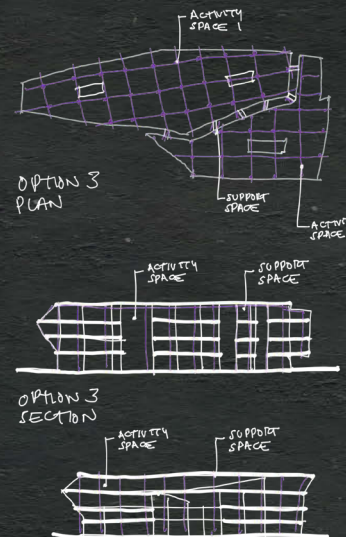 ACTIVITY
SPACE 1
OPTION 3
PLAN
SUPPORT
SPACE
ACTIVITY
SPACE
SUPPORT
SPACE
OPTION 3
SECTION
ACTIVITY
SPACE
SUPPORT
SPACE